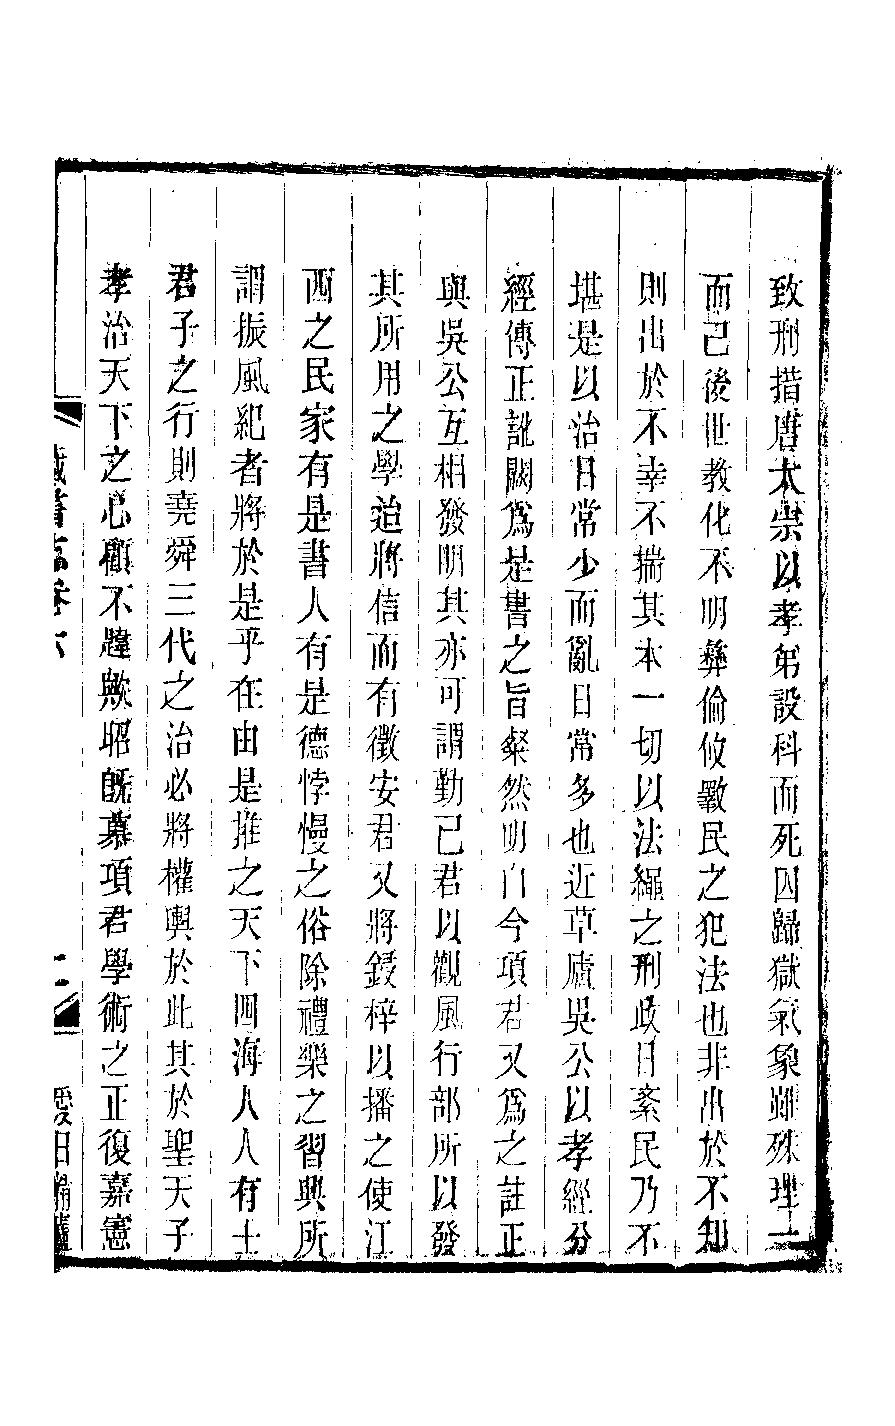 致刑措唐太宗以孝弟設科而死囚歸獄氣象雖殊理一
而已後世教化不明彝倫攸斁民之犯法也非出於不知
則出於不幸不揣其本一切以法繩之刑政日紊民乃不
堪是以治日常少而亂日常多也近草廬吳公以孝經分
經傳正訛闕爲是書之旨粲然明白今項君又爲之註正
與吳公互相發明其亦可謂勤已君以觀風行部所以發
其所用之學迨將信而有徵安君又將鋟梓以播之使江
西之民家有是書人有是德悖慢之俗除禮樂之習興所
謂振風紀者將於是乎在由是推之天下四海人人有士
君子之行則堯舜三代之治必將權輿於此其於聖天子
孝治天下之心顧不韙歟昭旣慕項君學術之正復嘉憲
藏書志卷六
愛日精廬